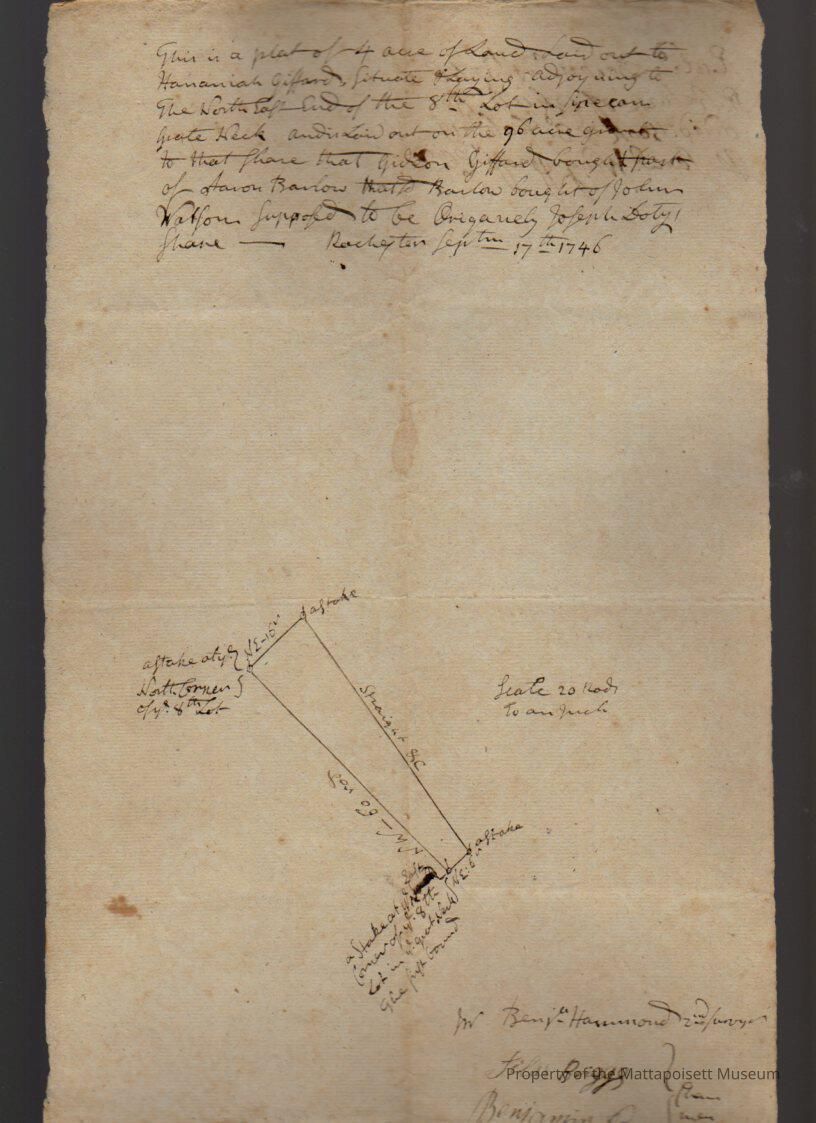 This is a plat of 4 acre of Land Laid out to
Hananiah Giffard, Situate & Laying adjoyning to
The North East End of the 8th Lot in Sipecan
Grate Neck and is Laid out on the 96 acre grant
to that Share that Gideon Giffard bought part
of Aaron Barlow that sd Barlow bought of John
Watson Supposed to be Origanely Joseph Dotys
Share — Rochester Septm 17th 1746
a Stake
NE-16
a Stake at ye
North Corner
of ye 8th Lot
Scale 20 Rods
to an Inch
Straight &c
NW - 60 rod
a Stake
NE-6
a Stake at ye East
Corner of ye 8th
Lot in ye great Neck
The first bound
pr Benja Hammond 2nd Survayr
Briggs
Benjamin
Chain
men
Property of the Mattapoisett Museum